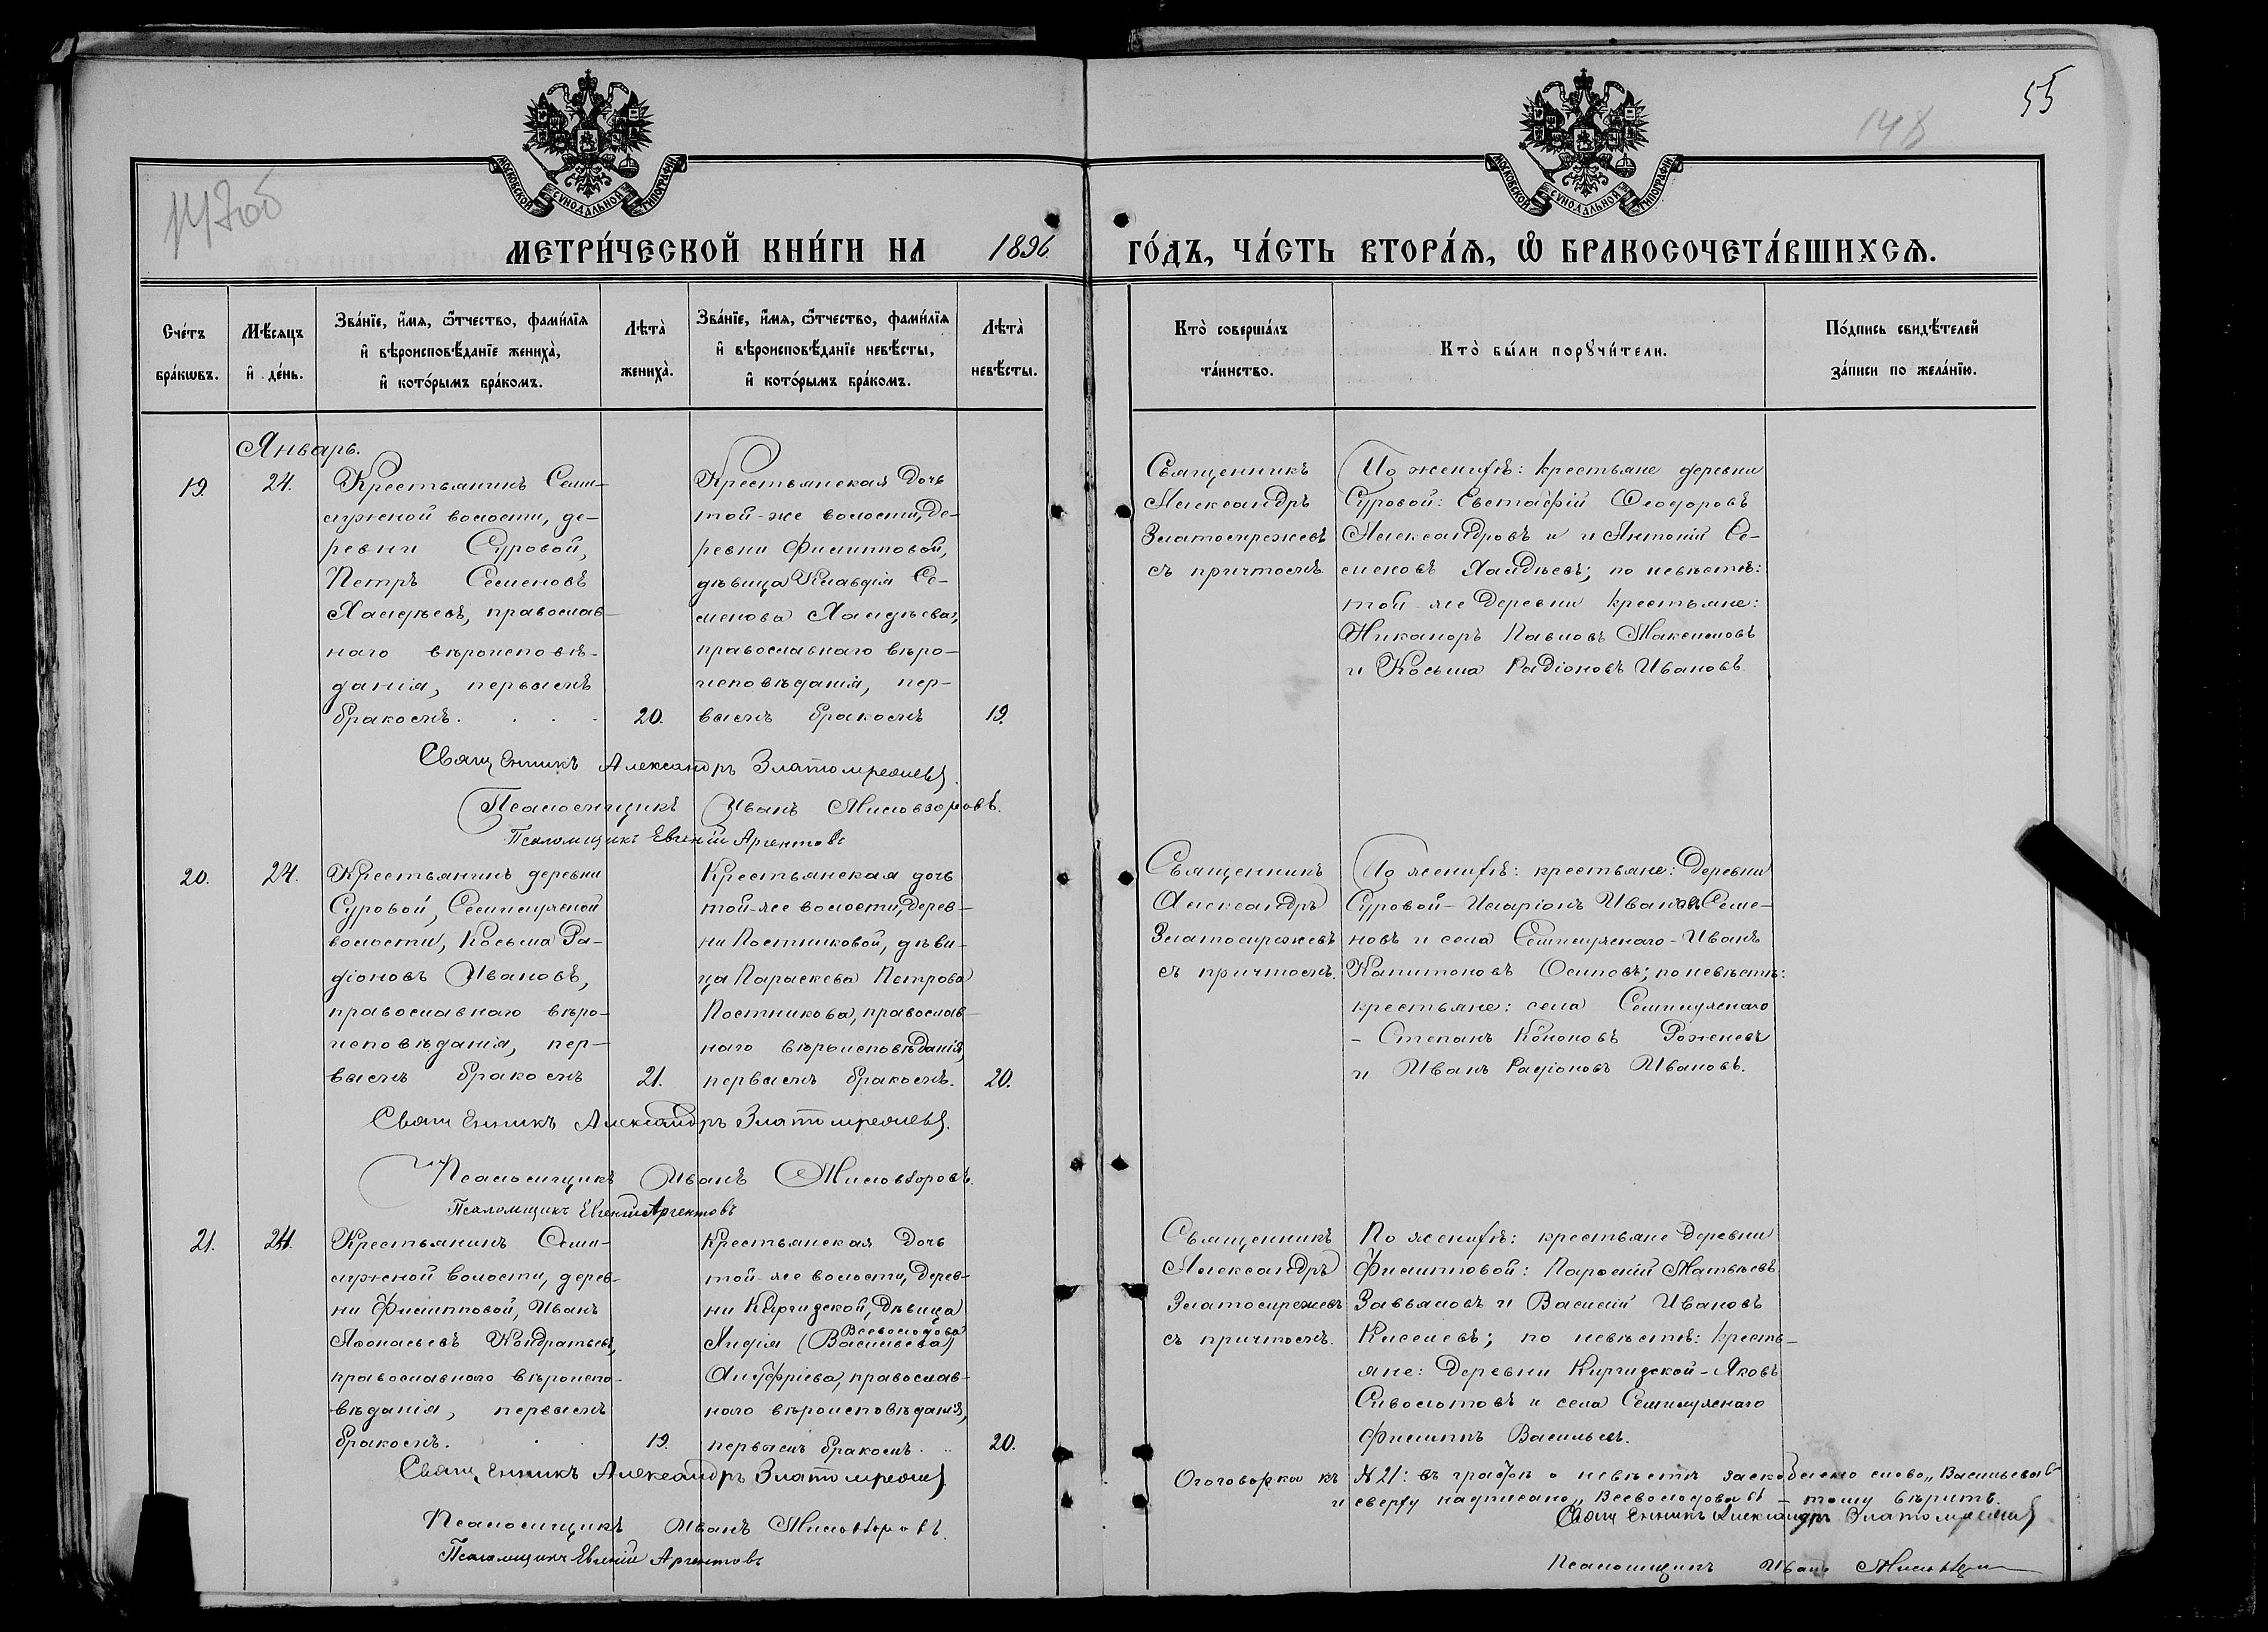 55
148
МОСКОВСКОЙ СѴНОДАЛЬНОЙ ТИПОГРАФІИ
МОСКОВСКОЙ СѴНОДАЛЬНОЙ ТИПОГРАФІИ
МЕТРИ́ЧЕСКОЙ КНИ́ГИ НА 1896. ГО́ДЪ, ЧА́СТЬ ВТОРА́Ѧ, Ѽ БРАКОСОЧЕТА́ВШИХСѦ.
Сче́тъ бра́кѡвъ.
Мѣ́сяцъ и҆ де́нь.
Зва́нїе, и҆́мя, ѻ҆́тчество, фами́лїя
и҆ вѣроисповѣ́данїе жениха̀,
и҆ кото́рымъ бра́комъ.
Лѣта̀ жениха̀.
Зва́нїе, и҆́мя, ѻ҆́тчество, фами́лїя
и҆ вѣроисповѣ́данїе невѣ́сты,
и҆ кото́рымъ бра́комъ.
Лѣта̀ невѣ́сты.
Кто̀ соверша́лъ та́инство.
Кто̀ бы́ли порꙋчи́тели.
По́дпись свидѣ́телей за́писи по жела́нїю.
Январь.
19. 24.
Крестьянинъ Семи-
лужной волости, де-
ревни Суровой,
Петръ Семеновъ
Халдѣевъ, православ-
наго вѣроисповѣ-
данія, первымъ
бракомъ. . . . 20.
Крестьянская дочь
той-же волости, де-
ревни Филипповой,
дѣвица Клавдія Се-
менова Халдѣева,
православнаго вѣро-
исповѣданія, пер-
вымъ бракомъ 19.
Священникъ
Александръ
Златомрежевъ
съ причтомъ
По женихѣ: крестьяне деревни
Суровой: Евстафій Ѳеодоровъ
Александровъ и и Антоній Се-
меновъ Халдѣевъ; по невѣстѣ:
той-же деревни крестьяне:
Никаноръ Павловъ Максимовъ
и Косьма Радіоновъ Ивановъ.
Священникъ Александръ Златомрежевъ.
Псаломщикъ Иванъ Миловзоровъ.
Псаломщикъ Евгеній Аргентовъ
20. 24.
Крестьянинъ деревни
Суровой, Семилужной
волости, Косьма Ра-
діоновъ Ивановъ,
православнаго вѣро-
исповѣданія, пер-
вымъ бракомъ 21.
Крестьянская дочь
той-же волости, дерев-
ни Постниковой, дѣви-
ца Параскева Петрова
Постникова, православ-
наго вѣроисповѣданія,
первымъ бракомъ. 20.
Священникъ
Александръ
Златомрежевъ
съ причтомъ.
По женихѣ: крестьяне: деревни
Суровой - Иларіонъ Ивановъ Семе-
новъ и села Семилужнаго - Иванъ
Капитоновъ Осиповъ; по невѣстѣ:
крестьяне: села Семилужнаго
- Степанъ Кононовъ Роженевъ
и Иванъ Радіоновъ Ивановъ.
Священникъ Александръ Златомрежевъ.
Псаломщикъ Иванъ Миловзоровъ.
Псаломщикъ Евгеній Аргентовъ
21. 24.
Крестьянинъ Семи-
лужной волости, дерев-
ни Филипповой, Иванъ
Аѳонасьевъ Кондратьевъ,
православнаго вѣроиспо-
вѣданія, первымъ
бракомъ. . . 19.
Крестьянская дочь
той-же волости, дерев-
ни Киргизской, дѣвица
Всеволодова
Лидія (Васильева)
Ануфріева, православ-
наго вѣроисповѣданія,
первымъ бракомъ. . 20.
Священникъ
Александръ
Златомрежевъ
съ причтомъ.
По женихѣ: крестьяне деревни
Филипповой: Парѳеній Матвѣевъ
Завьяловъ и Василій Ивановъ
Киселевъ; по невѣстѣ: кресть-
яне: деревни Киргизской - Яковъ
Сиволотовъ и села Семилужнаго
Филиппъ Васильевъ.
Священникъ Александръ Златомрежевъ
Псаломщикъ Иванъ Миловзоровъ.
Псаломщикъ Евгеній Аргентовъ
Оготоворка къ № 21: въ графѣ о невѣстѣ заскоблено слово „Васильева"
и сверху надписано „Всеволодова" - тому вѣрить.
Священникъ Александръ Златомрежевъ
Псаломщикъ Иванъ